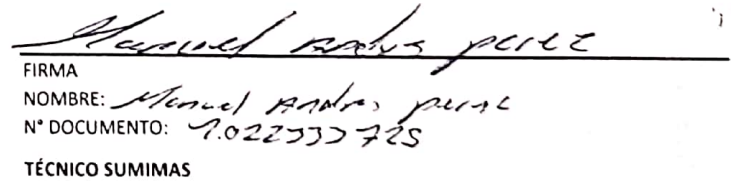 Manuel Andres perez
FIRMA
NOMBRE: Manuel Andres perez
N° DOCUMENTO: 1.022333725
TÉCNICO SUMIMAS